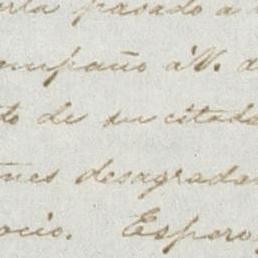 rla pasado a
ompaño á V. d
to de su citada
ones desagrada
ocio. Espero